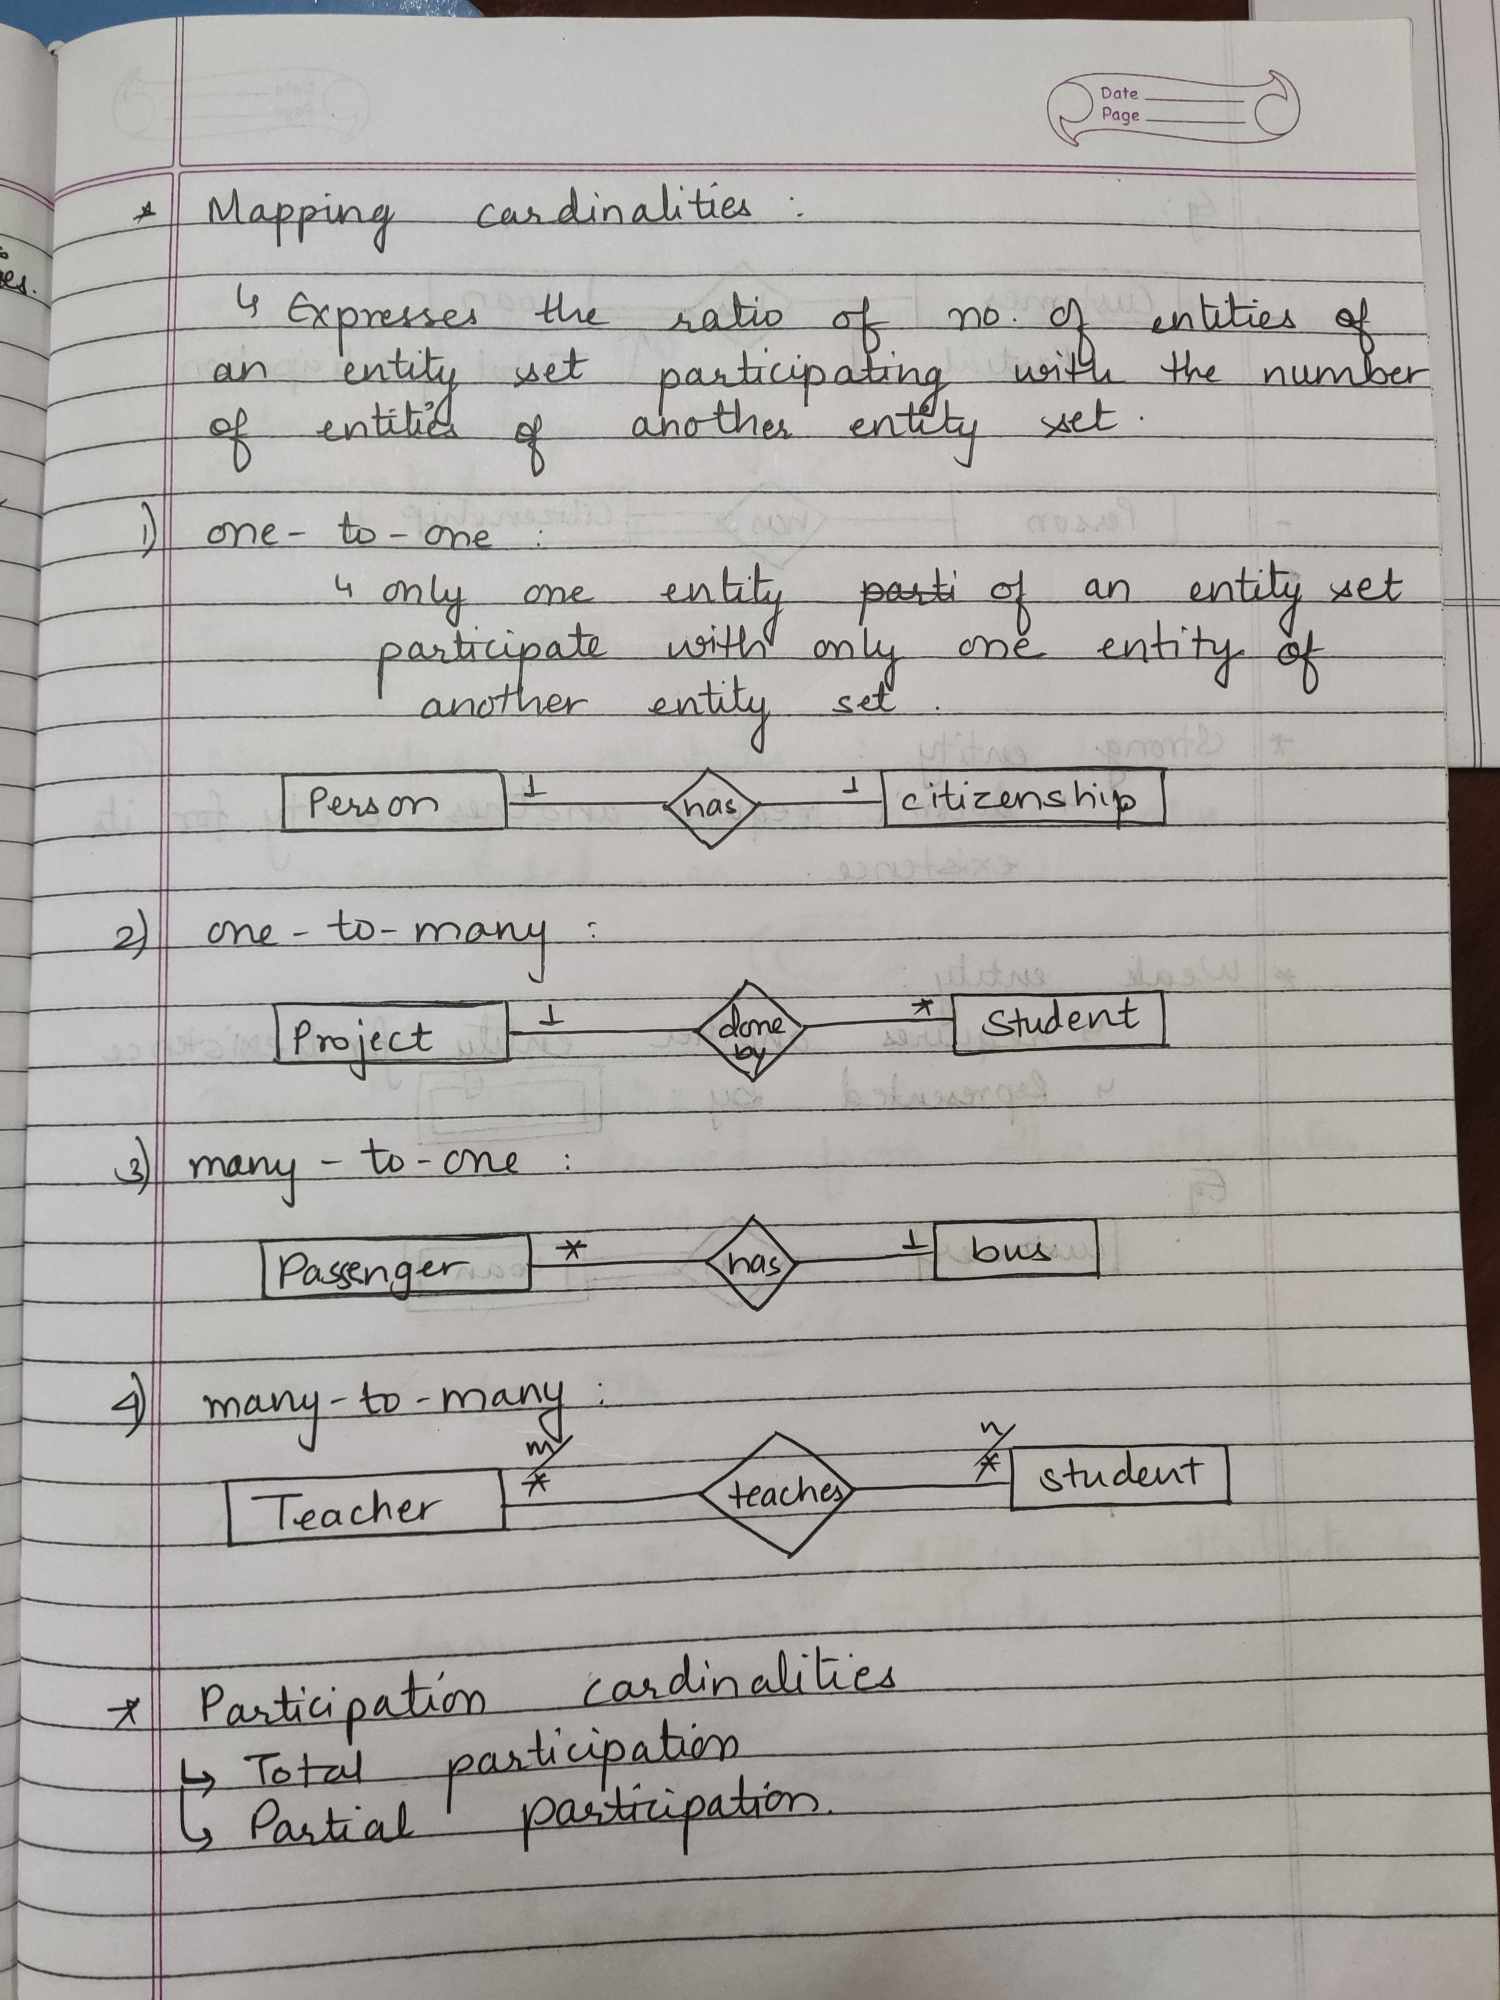 Date
Page
* Mapping cardinalities :
↳ Expresses the ratio of no. of entities of
an entity set participating with the number
of entities of another entity set.
1) one-to-one :
↳ only one entity parti of an entity set
participate with only one entity of
another entity set.
Person 1 has 1 citizenship
2) one-to-many :
Project 1 done by * Student
3) many-to-one :
Passenger * has 1 bus
4) many-to-many :
m/ n/
Teacher * teaches * student
* Participation cardinalities
↳ Total participation
↳ Partial participation.